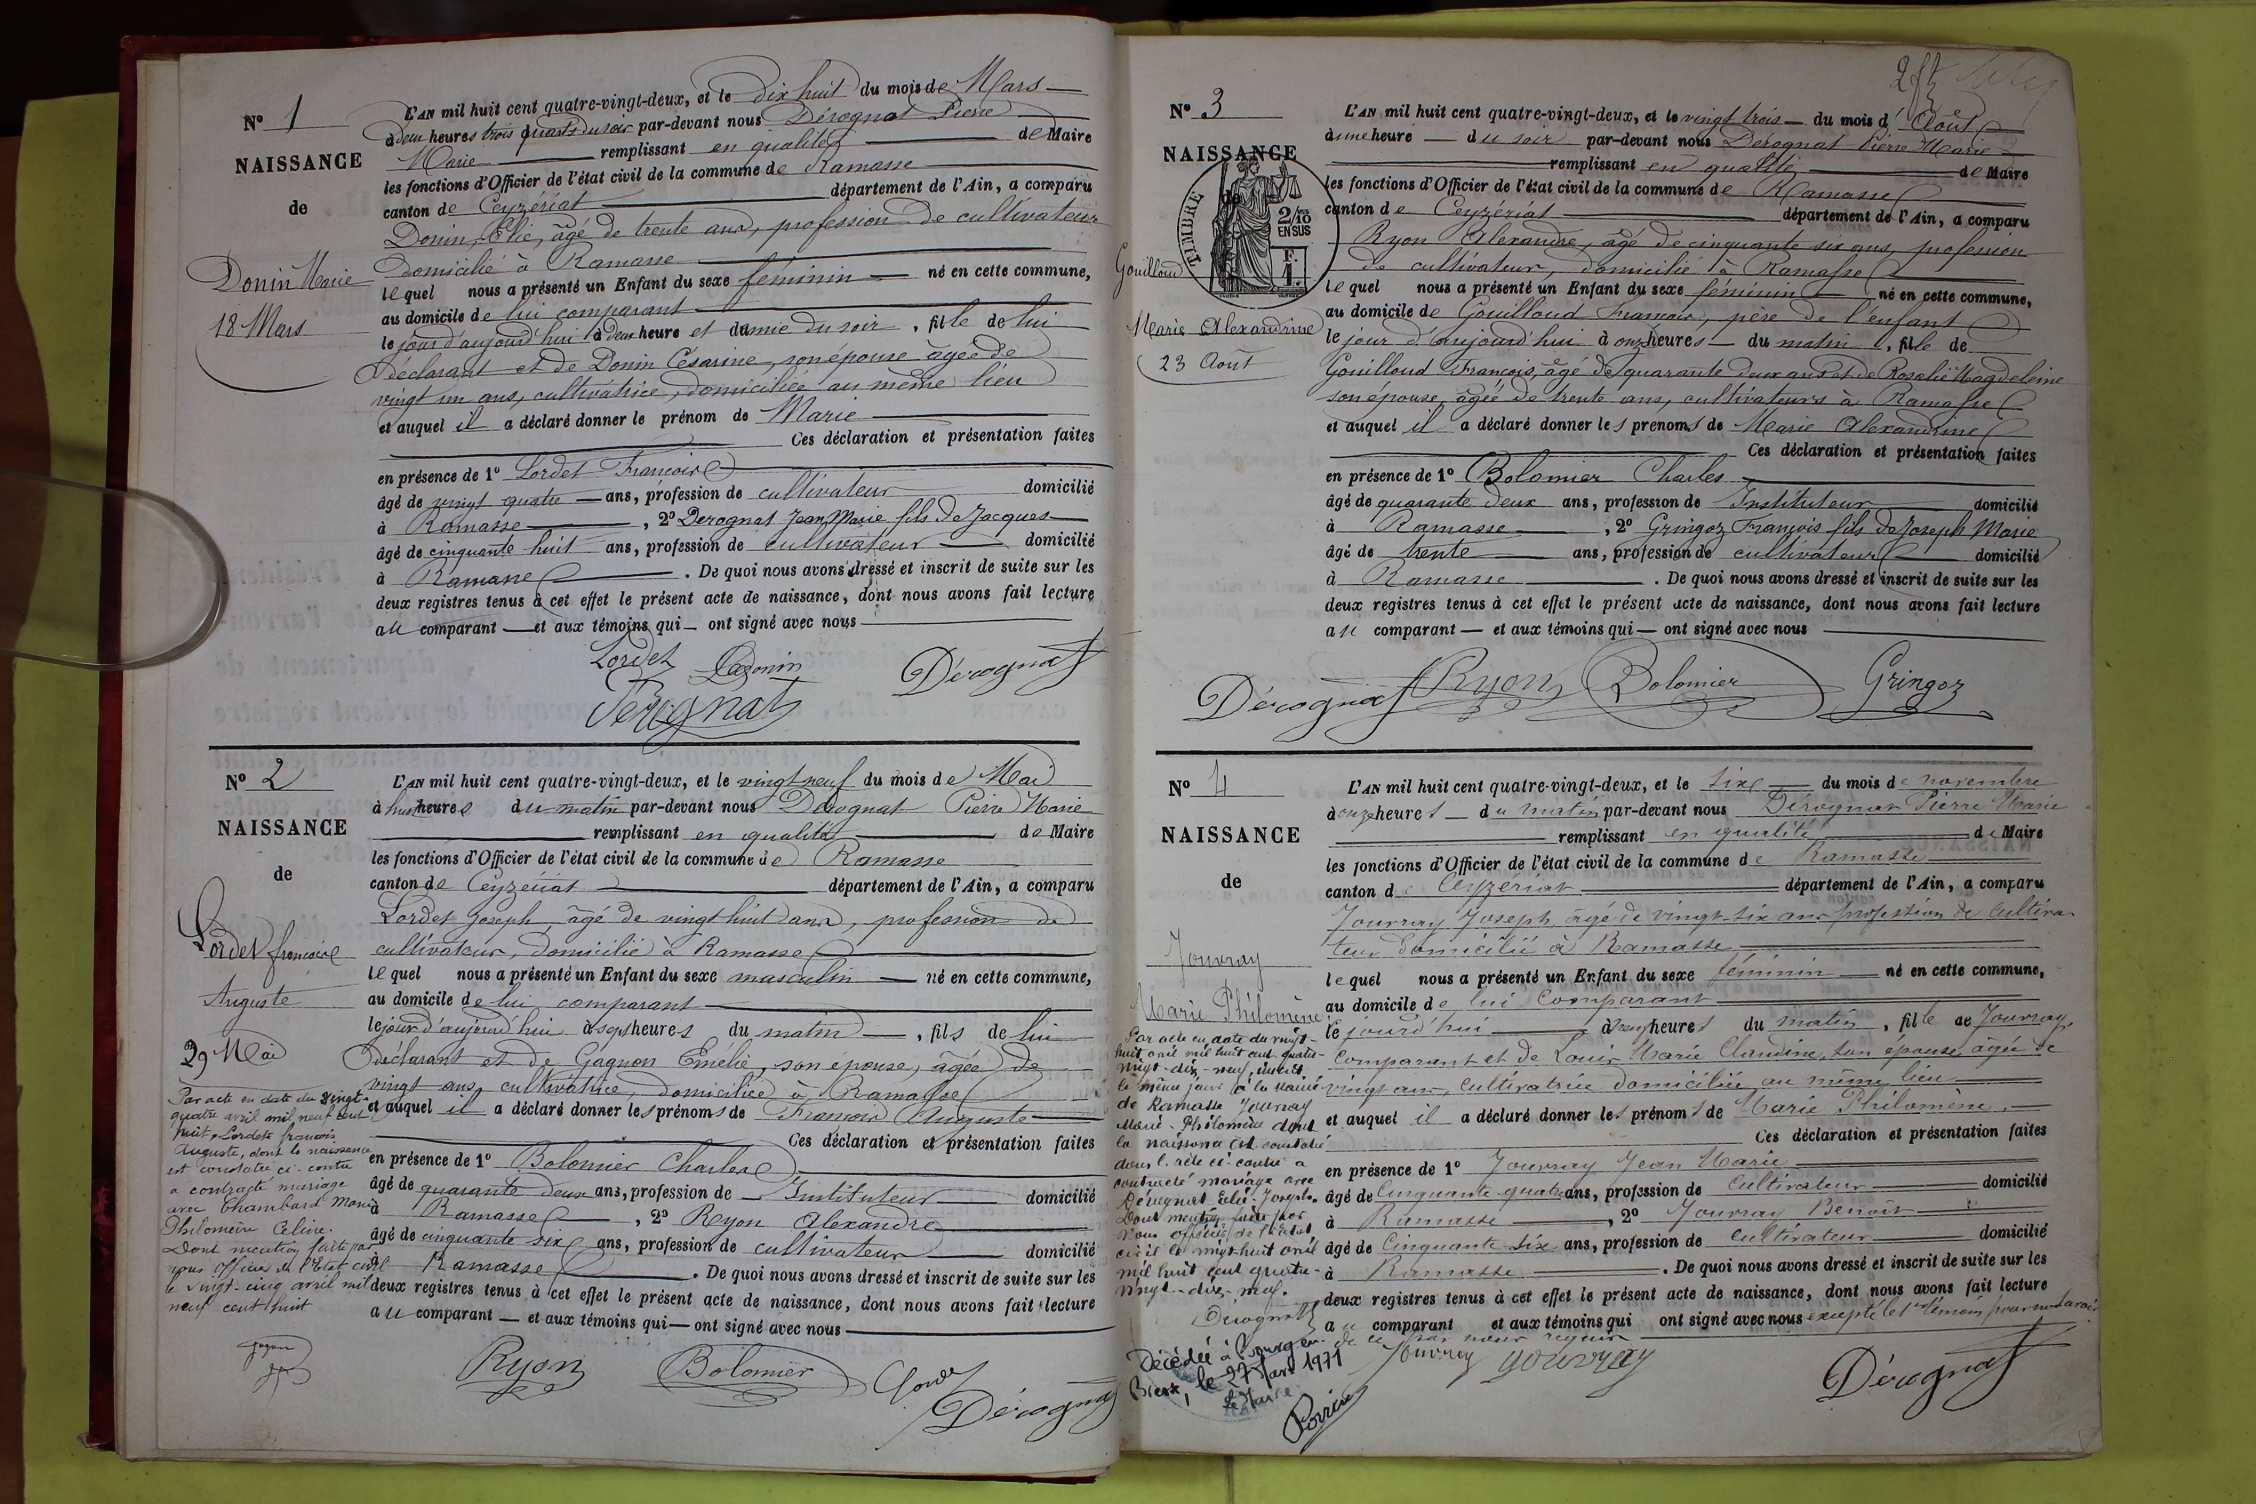 Nº 1
NAISSANCE
de
Donin Marie
18 Mars
L'AN mil huit cent quatre-vingt-deux, et le dix huit du mois de Mars
à deux heures trois quarts du soir par-devant nous Dérognat Pierre
Marie remplissant en qualité de Maire
les fonctions d'Officier de l'état civil de la commune de Ramasse
canton de Ceyzériat département de l'Ain, a comparu
Donin Elie, âgé de trente ans, profession de cultivateur
domicilié à Ramasse
lequel nous a présenté un Enfant du sexe féminin né en cette commune,
au domicile de lui comparant
le jour d'aujourd'hui à deux heure et demie du soir, fille de lui
déclarant et de Donin Césarine, son épouse âgée de
vingt un ans, cultivatrice, domiciliée au même lieu
et auquel il a déclaré donner le prénom de Marie
Ces déclaration et présentation faites
en présence de 1º Lordet François
âgé de vingt quatre ans, profession de cultivateur domicilié
à Ramasse, 2º Derognat Jean Marie fils de Jacques
âgé de cinquante huit ans, profession de cultivateur domicilié
à Ramasse. De quoi nous avons dressé et inscrit de suite sur les
deux registres tenus à cet effet le présent acte de naissance, dont nous avons fait lecture
au comparant et aux témoins qui ont signé avec nous
Lordet Donin Dérognat
Derognat
Nº 2
NAISSANCE
de
Lordet François
Auguste
29 Mai
Par acte en date du vingt-
quatre avril mil neuf cent
huit, Lordet françois
Auguste, dont la naissance
est constatée ci-contre
a contracté mariage
avec Chambard Marie
Philomène Céline.
Dont mention faite par
nous officier de l'Etat civil
le vingt-cinq avril mil
neuf cent huit
L'AN mil huit cent quatre-vingt-deux, et le vingt neuf du mois de Mai
à huit heures du matin par-devant nous Dérognat Pierre Marie
remplissant en qualité de Maire
les fonctions d'Officier de l'état civil de la commune de Ramasse
canton de Ceyzériat département de l'Ain, a comparu
Lordet Joseph, âgé de vingt huit ans, profession de
cultivateur, domicilié à Ramasse
lequel nous a présenté un Enfant du sexe masculin né en cette commune,
au domicile de lui comparant
le jour d'aujourd'hui à sept heures du matin, fils de lui
déclarant et de Gagnon Emélie, son épouse, âgée de
vingt ans, cultivatrice, domiciliée à Ramasse
et auquel il a déclaré donner les prénoms de François Auguste
Ces déclaration et présentation faites
en présence de 1º Bolomier Charles
âgé de quarante deux ans, profession de Instituteur domicilié
à Ramasse, 2º Ryon Alexandre
âgé de cinquante six ans, profession de cultivateur domicilié
à Ramasse. De quoi nous avons dressé et inscrit de suite sur les
deux registres tenus à cet effet le présent acte de naissance, dont nous avons fait lecture
au comparant et aux témoins qui ont signé avec nous
Ryon Bolomier Lordet
Dérognat
Nº 3
NAISSANCE
de
TIMBRE
2/10
EN SUS
F.
1.
Gouilloud
Marie Alexandrine
23 Août
L'AN mil huit cent quatre-vingt-deux, et le vingt trois du mois d'Août
à une heure du soir par-devant nous Dérognat Pierre Marie
remplissant en qualité de Maire
les fonctions d'Officier de l'état civil de la commune de Ramasse
canton de Ceyzériat département de l'Ain, a comparu
Ryon Alexandre, âgé de cinquante six ans, profession
de cultivateur, domicilié à Ramasse
lequel nous a présenté un Enfant du sexe féminin né en cette commune,
au domicile de Gouilloud François, père de l'enfant
le jour d'aujourd'hui à onze heures du matin, fille de
Gouilloud François, âgé de quarante deux ans et de Roselie Magdeleine
son épouse, âgée de trente ans, cultivateurs à Ramasse
et auquel il a déclaré donner les prenoms de Marie Alexandrine
Ces déclaration et présentation faites
en présence de 1º Bolomier Charles
âgé de quarante deux ans, profession de Instituteur domicilié
à Ramasse, 2º Gringoz François fils de Joseph Marie
âgé de trente ans, profession de cultivateur domicilié
à Ramasse. De quoi nous avons dressé et inscrit de suite sur les
deux registres tenus à cet effet le présent acte de naissance, dont nous avons fait lecture
au comparant et aux témoins qui ont signé avec nous
Dérognat Ryon Bolomier Gringoz
Nº 4
NAISSANCE
de
Jouvray
Marie Philomène
Par acte en date du vingt-
huit avril mil huit cent quatre-
vingt-dix-neuf, inscrit
le même jour à la mairie
de Ramasse Jouvray
Marie-Philomène dont
la naissance est constatée
dans l'acte ci-contre a
contracté mariage avec
Dérognat Elie-Joseph.
Dont mention faite par
nous officier de l'état
civil le vingt-huit avril
mil huit cent quatre-
vingt-dix-neuf.
Dérognat
Décédée à Bourg en
Bresse, le 27 Mars 1971
Le Maire
L'AN mil huit cent quatre-vingt-deux, et le six du mois de novembre
à onze heures du matin par-devant nous Dérognat Pierre Marie
remplissant en qualité de Maire
les fonctions d'Officier de l'état civil de la commune de Ramasse
canton de Ceyzériat département de l'Ain, a comparu
Jouvray Joseph âgé de vingt-six ans profession de cultiva-
teur domicilié à Ramasse
lequel nous a présenté un Enfant du sexe féminin né en cette commune,
au domicile de lui comparant
le jourd'hui à heures du matin, fille de Jouvray
comparant et de Louis Marie Claudine, son épouse, âgée de
vingt ans, cultivatrice domiciliée au même lieu
et auquel il a déclaré donner les prénoms de Marie Philomène
Ces déclaration et présentation faites
en présence de 1º Jouvray Jean Marie
âgé de Cinquante-quatre ans, profession de Cultivateur domicilié
à Ramasse, 2º Jouvray Benoît
âgé de Cinquante-six ans, profession de cultivateur domicilié
à Ramasse. De quoi nous avons dressé et inscrit de suite sur les
deux registres tenus à cet effet le présent acte de naissance, dont nous avons fait lecture
au comparant et aux témoins qui ont signé avec nous excepté le 1er témoin pour ne le savoir
de ce par nous requis
Jouvray Jouvray
Dérognat